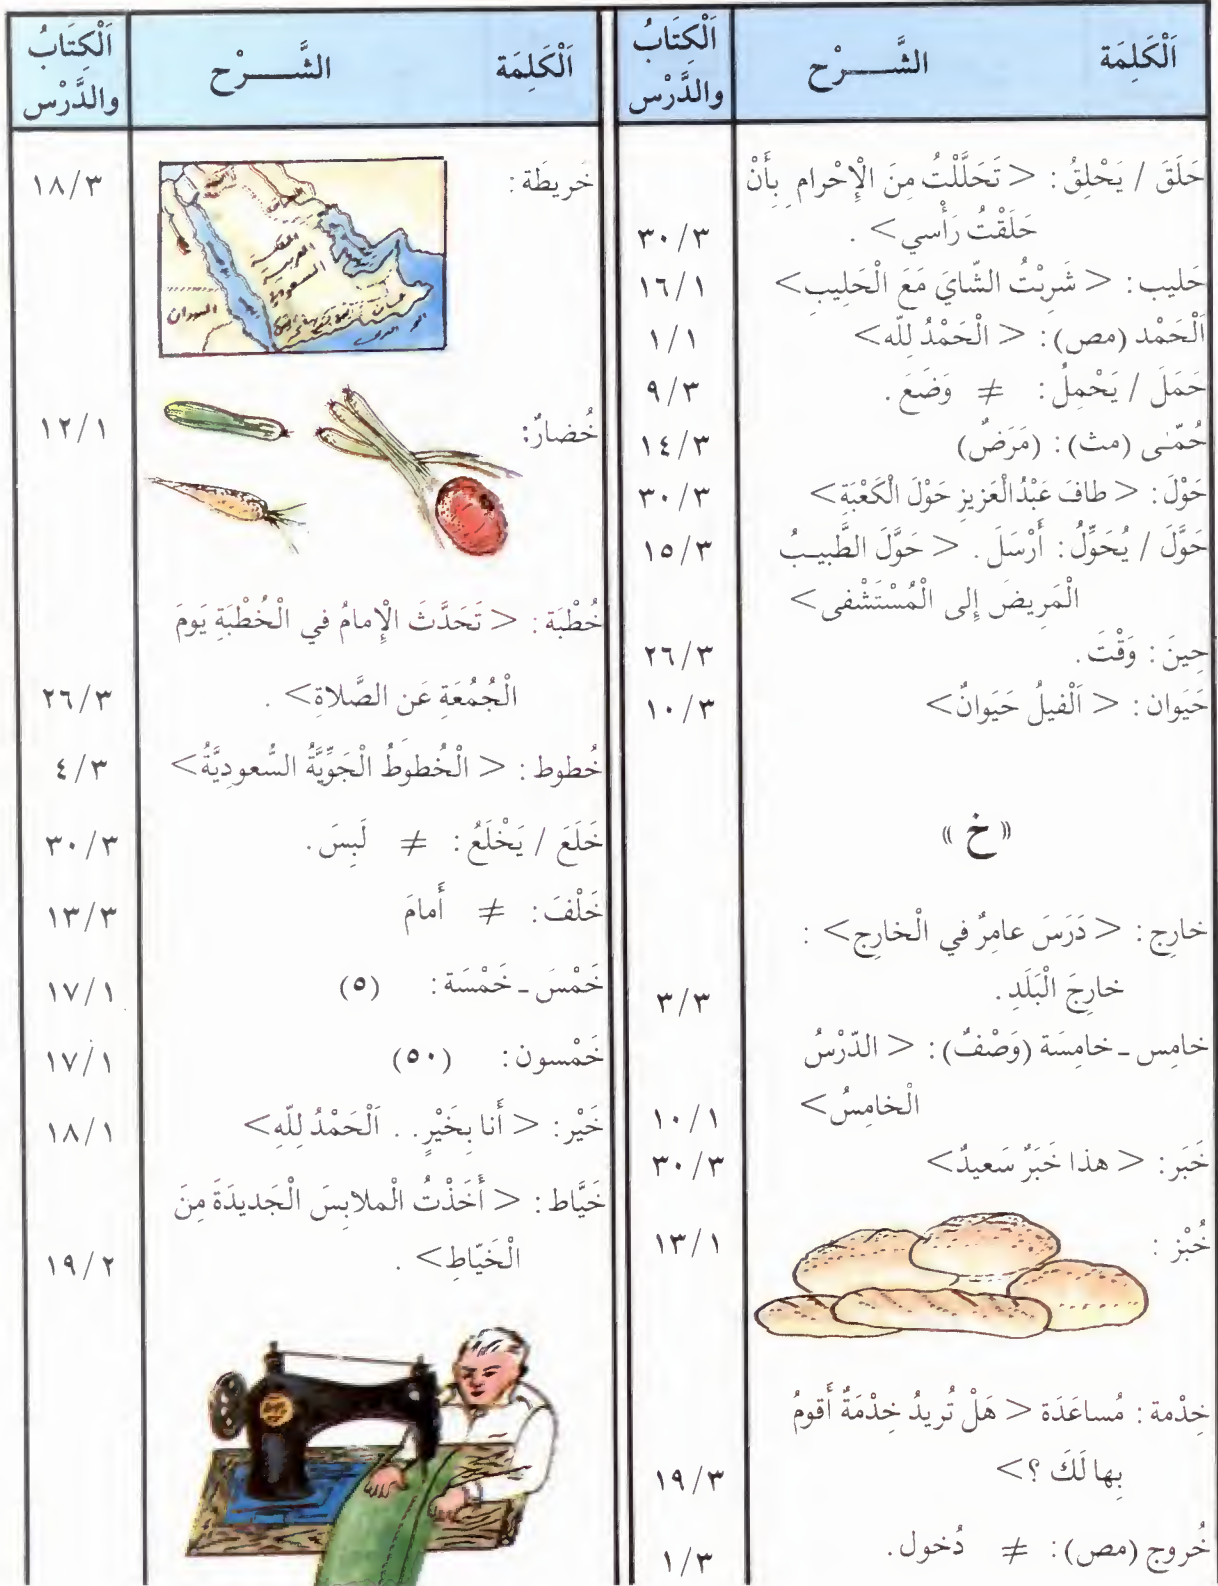 اَلْكَلِمَة الشَّــــرْح اَلْكِتَابُ والدَّرْس
حَلَقَ / يَحْلِقُ : < تَحَلَّلْتُ مِنَ الْإِحْرام بِأَنْ
حَلَقْتُ رَأْسي> . ٣٠/٣
حَليب : < شَرِبْتُ الشّايَ مَعَ الْحَلِيبِ> ١٦/١
اَلْحَمْد (مص) : < الْحَمْدُ لِلّه> ١/١
حَمَلَ / يَحْمِلُ : ≠ وَضَعَ . ٩/٣
حُمّى (مث) : (مَرَضٌ) ١٤/٣
حَوْلَ : < طافَ عَبْدُالْعَزيزِ حَوْلَ الْكَعْبَةِ> ٣٠/٣
حَوَّلَ / يُحَوِّلُ : أَرْسَلَ . < حَوَّلَ الطَّبيبُ ١٥/٣
الْمَريضَ إِلى الْمُسْتَشْفى>
حِينَ : وَقْتَ . ٢٦/٣
حَيَوان : < اَلْفيلُ حَيَوانٌ> ١٠/٣
« خ »
خارِج : < دَرَسَ عامِرٌ في الْخارِجِ> :
خارِجَ الْبَلَدِ . ٣/٣
خامِس ـ خامِسَة (وَصْفٌ) : < الدّرْسُ
الْخامِسُ> ١٠/١
خَبَر : < هذا خَبَرٌ سَعيدٌ> ٣٠/٣
خُبْز : ١٣/١
خِدْمة : مُساعَدَة < هَلْ تُريدُ خِدْمَةً أَقومُ
بِها لَكَ ؟> ١٩/٣
خُروج (مص) : ≠ دُخول . ١/٣
اَلْكَلِمَة الشَّــــرْح اَلْكِتَابُ والدَّرْس
خَريطَة : ١٨/٣
السودان
خُضارٌ: ١٢/١
خُطْبَة : < تَحَدَّثَ الْإِمامُ في الْخُطْبَةِ يَومَ
الْجُمُعَةِ عَن الصَّلاةِ> . ٢٦/٣
خُطوط : < الْخُطوطُ الْجَوِّيَّةُ السُّعودِيَّةُ> ٤/٣
خَلَعَ / يَخْلَعُ : ≠ لَبِسَ . ٣٠/٣
خَلْفَ : ≠ أَمامَ ١٣/٣
خَمْسَ ـ خَمْسَة : (٥) ١٧/١
خَمْسون : (٥٠) ١٧/١
خَيْر : < أَنا بِخَيْرٍ . . اَلْحَمْدُ لِلّهِ> ١٨/١
خَيَّاط : < أَخَذْتُ الْملابِسَ الْجَديدَةَ مِنَ
الْخَيّاطِ> . ١٩/٢